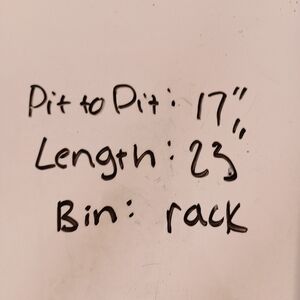 Pit to Pit: 17"
Length: 23"
Bin: rack